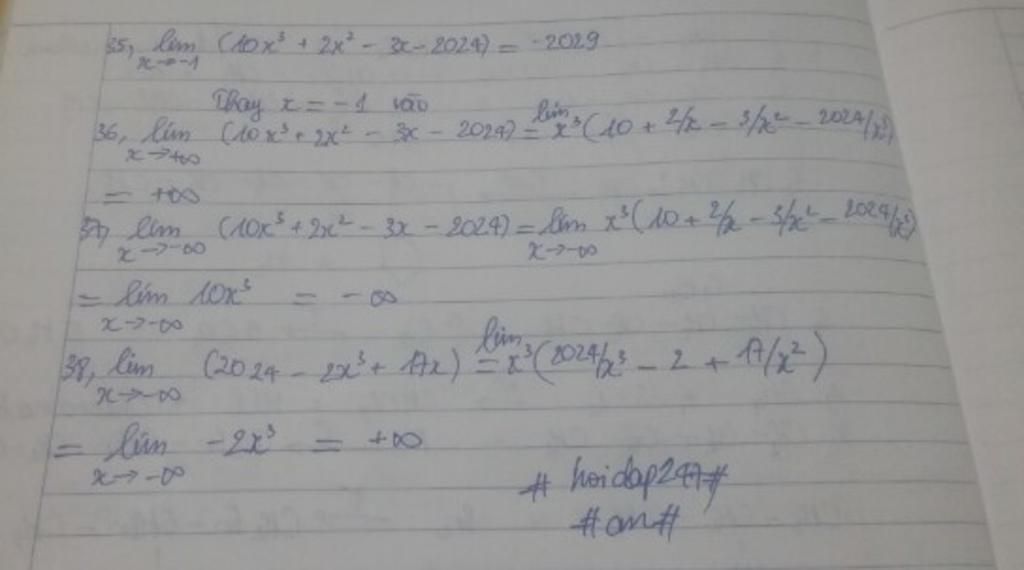 35, lim (10x³ + 2x² - 3x - 2024) = -2029
x→-1
Thay x = -1 vào
36, lim (10x³ + 2x² - 3x - 2024) = lim x³(10 + 2/x - 3/x² - 2024/x³)
x→+∞
= +∞
37, lim (10x³ + 2x² - 3x - 2024) = lim x³(10 + 2/x - 3/x² - 2024/x³)
x→-∞ x→-∞
= lim 10x³ = -∞
x→-∞
38, lim (2024 - 2x³ + 17x) = lim x³(2024/x³ - 2 + 17/x²)
x→-∞
= lim -2x³ = +∞
x→-∞
# hoidap247#
#an#